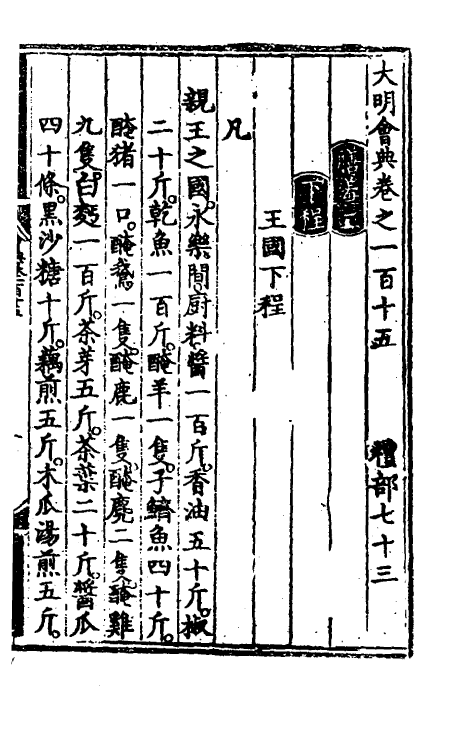 大明會典卷之一百十五　禮部七十三
膳羞二
下程
王國下程
凡
親王之國。永樂間厨料醬一百斤。香油五十斤。椒
二十斤。乾魚一百斤。醃羊一隻。子鱭魚四十斤。
醃猪一口。醃鵞一隻。醃鹿一隻。醃麂二隻。醃雞
九隻。白麪一百斤。茶芽五斤。茶葉二十斤。醬瓜
四十條。黑沙糖十斤。藕煎五斤。木瓜湯煎五斤。